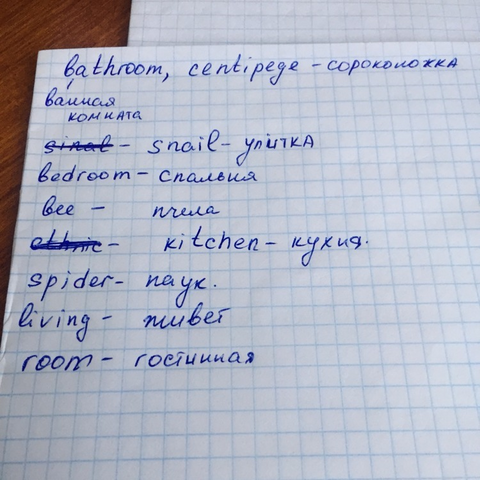 bathroom, centipege - сороконожка
ванная
комната
sinal - snail - улітка
bedroom - спальня
bee - пчела
ethnic - kitchen - кухня.
spider - паук.
living - живет
room - гостинная